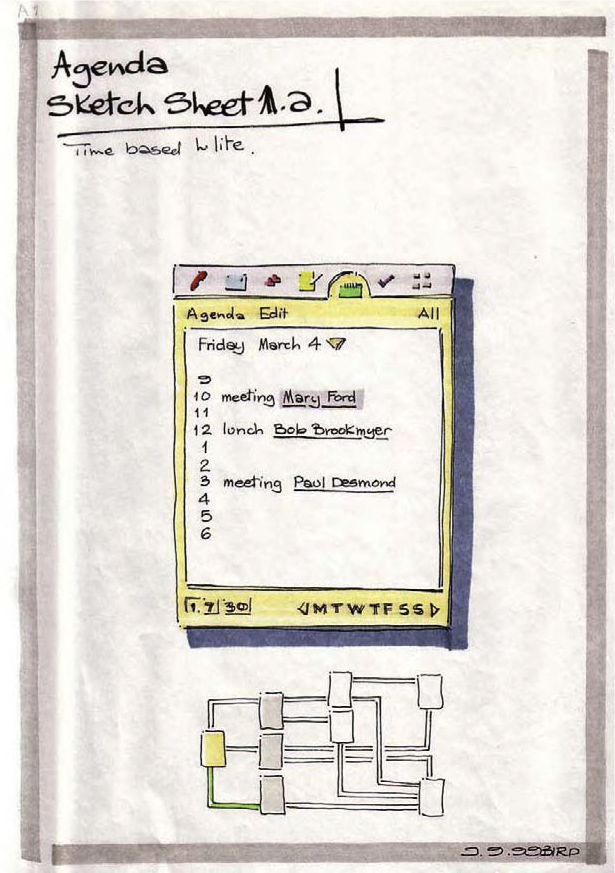 A1
Agenda
Sketch Sheet 1.a.
Time based lite.
Agenda Edit All
Friday March 4
9
10 meeting Mary Ford
11
12 lunch Bob Brookmyer
1
2
3 meeting Paul Desmond
4
5
6
1. 7 30 MTWTFSS